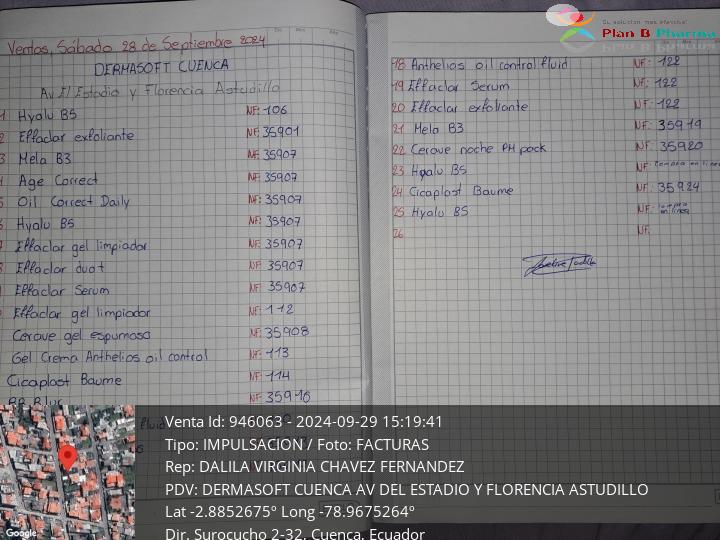 Su solución más efectiva!
Plan B Pharma
Ventas, Sábado 28 de Septiembre 2024
DERMASOFT CUENCA
Av El Estadio y Florencia Astudillo
1 Hyalu B5 NF: 106
2 Effaclar exfoliante NF: 35901
3 Mela B3 NF: 35907
Age Correct NF: 35907
Oil Correct Daily NF: 35907
Hyalu B5 NF: 35907
Effaclar gel limpiador NF: 35907
Effaclar duo+ NF: 35907
Effaclar Serum NF: 35907
Effaclar gel limpiador NF: 112
Cerave gel espumoso NF: 35908
Gel Crema Anthelios oil control NF: 113
Cicaplast Baume NF: 114
BB Blur NF: 35910
fluid
18 Anthelios oil control fluid NF: 122
19 Effaclar Serum NF: 122
20 Effaclar exfoliante NF: 122
21 Mela B3 NF: 35919
22 Cerave noche PH pack NF: 35920
23 Hyalu B5 NF: compra en linea
24 Cicaplast Baume NF: 35924
25 Hyalu B5 NF: compra en linea
26 NF:
Venta Id: 946063 - 2024-09-29 15:19:41
Tipo: IMPULSACION / Foto: FACTURAS
Rep: DALILA VIRGINIA CHAVEZ FERNANDEZ
PDV: DERMASOFT CUENCA AV DEL ESTADIO Y FLORENCIA ASTUDILLO
Lat -2.8852675º Long -78.9675264º
Dir. Surocucho 2-32, Cuenca, Ecuador
Google